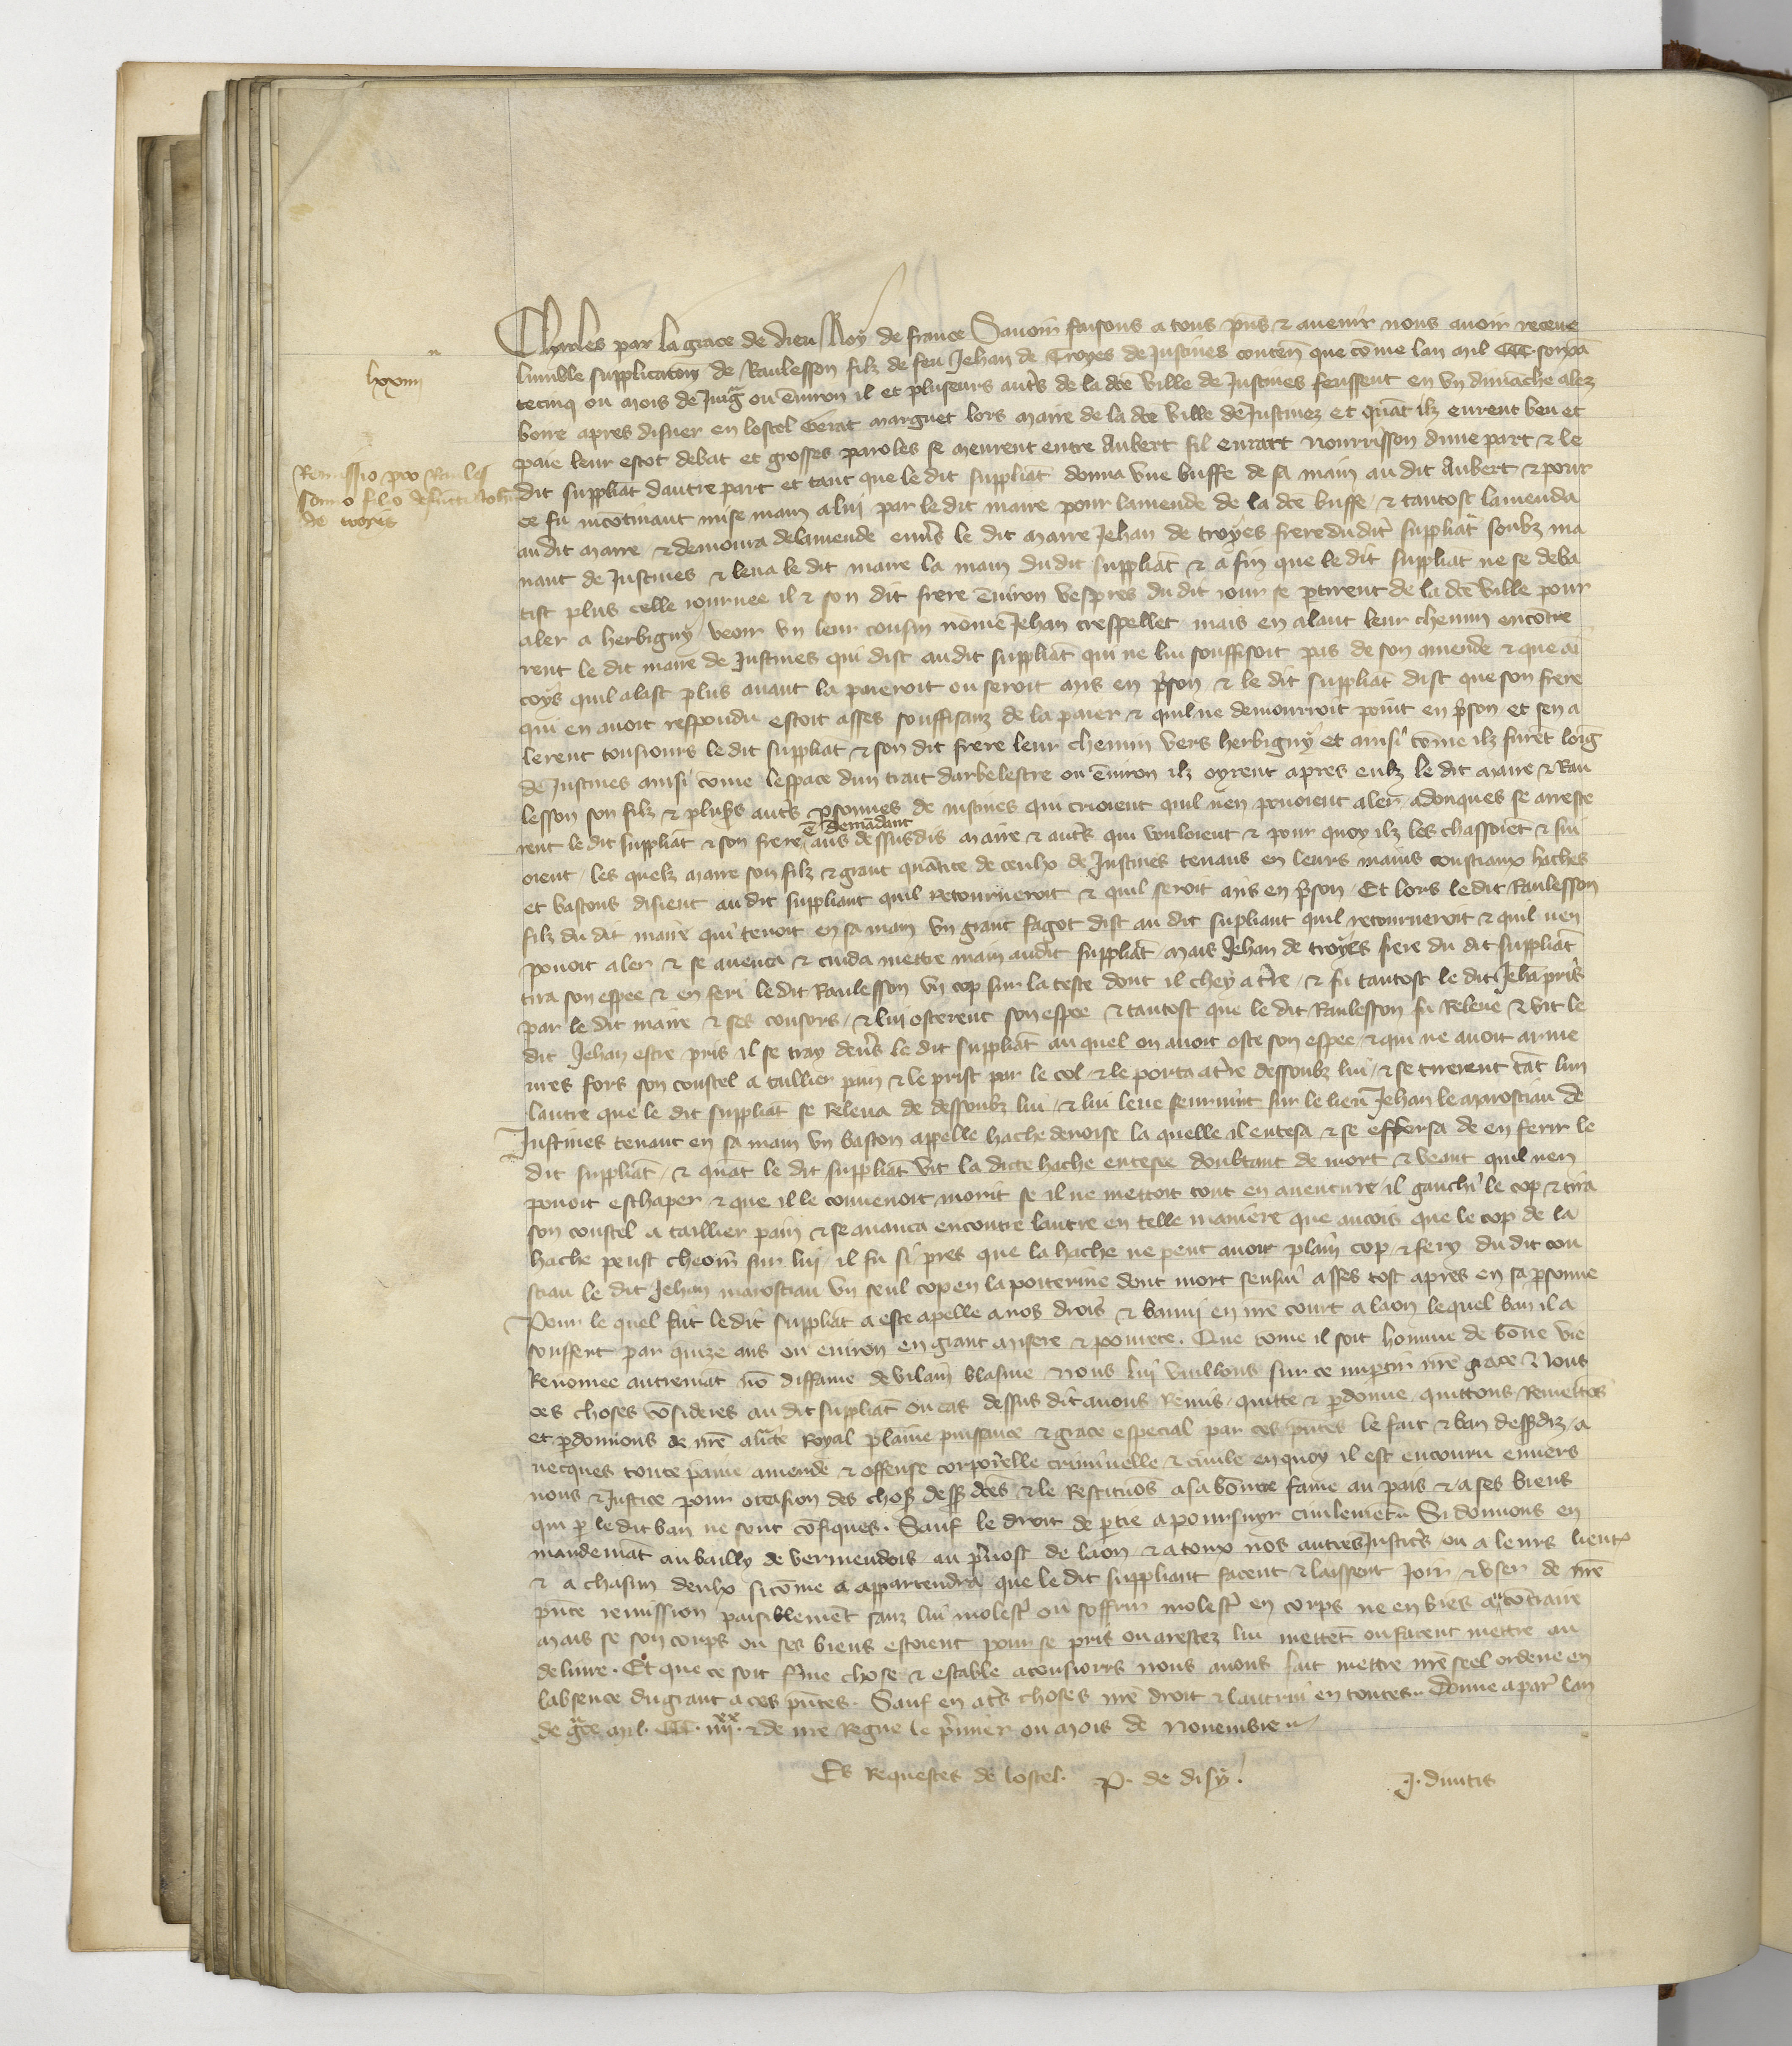 lxxiiii
Remissio pro Raules
sono filio defuncti Joh̄is
de troys
Charles par la grace de dieu Roy de france Savoir faisons a tous p̄ns & avenir nous avoir receue
lumble supplicacion de Raulesson filz de feu Jehan de Troyes de Justines conten̄ que cōme lan mil CCC. soixā
tecinq ou mois de Juing ou ēviron il et pluseurs aut̄s de la dc̄e ville de Justines feussent en un dimāche alez
boire apres disner en lostel Gerat marguet lors maire de la dc̄e ville de Justinez et quāt ilz eurent beu et
paie leur escot debat et grosses paroles se meurent entre Aubert fil enratt nourrisson dune part & le
dit suppliāt dautre part et tant que le dit suppliāt donna une buffe de sa main au dit Aubert & pour
ce fu incōtinant mise main a lui par le dit maire pour lamende de la dc̄e buffe / & tantost lamenda
au dit maire / & demoura delamende env̄s le dit maire Jehan de troyes frere dudit suppliāt soubz ma
nant de Justines & leva le dit maire la main du dit suppliāt & a fin que le dit suppliāt ne se deba
tist plus celle journee il & son dit frere ēviron vespres du dit jour se p̄tirent de la dc̄e ville pour
aler a herbigny veoir un leur cousin nōme Jehan crespellet mais en alant leur chemin encōtre
rent le dit maire de Justines qui dist audit suppliāt qui ne lui souffisoit pas de son amende & que ai
coys quil alast plus avant la paieroit ou seroit mis en p̄son & le dit suppliāt dist que son frere
qui en avoit respondu estoit asses souffisanz de la paier & quil ne demourroit point en p̄son et sen a
lerent tousjours le dit suppliāt & son dit frere leur chemin vers herbigny et ainsi cōme ilz furēt loing
de Justines ainsi cōme lespace dun trait darbelestre ou ēviron ilz oyrent apres eulz le dit maire & Rau
lesson son filz & plus̄s aut̄s p̄sonnes de Justines qui crioient quil nen pouoient aler / adonques se arreste
rent le dit suppliāt & son frere ē demādant aus dessusdis maire & aut̄s qui vouloient & pour quoy ilz les chassoiēt & sui
oient / les quelz maire son filz & grant quātite de ceulx de Justines tenans en leurs mains coustiaux haches
et bastons disient au dit suppliant quil Retourneroit & quil seroit mis en p̄son / Et lors ledit Raulesson
filz du dit maire qui tenoit en sa main un grant fagot dist au dit supliant quil retourneroit & quil nen
pouoit aler & se avenca & cuida mettre main audit suppliāt / mais Jehan de troyes frere du dit suppliāt
tira son espee & en feri le dit Raulesson un cop sur la teste dont il chey a t̄re / & fu tantost le dit Jehā pris
par le dit maire & ses consors / & lui osterent son espee & tantost que le dit Raulesson fu Releve & vit le
dit Jehan estre pris il se tray dev̄s le dit suppliāt au quel on avoit oste son espee / & qui ne avoit arme
ures fors son coustel a taillier pain & le prist par le col / & le porta a t̄re dessoubz lui / & se tirerent tāt lun
lautre que le dit suppliāt se Releva de dessoubz lui / & lui leve seurvint sur le lieu Jehan le marostiau de
Justines tenant en sa main un baston appelle hache denoise la quelle il entesa & se efforsa de en ferir le
dit suppliāt / & quāt le dit suppliāt vit la dicte hache entesee doubtant de mort & veant quil nen
pouoit eschaper & que il le convenoit morir se il ne mettoit tout en aventure / il gauchi le cop & tira
son coustel a taillier pain & se avanca encontre lautre en telle maniere que ancois que le cop de la
hache peust cheoir sur lui il fu si pres que la hache ne peut avoir plain cop & fery du dit cou
stiau le dit Jehan marostiau un seul cop en la poiterine dont mort sensui asses tost apres en sa p̄sonne
Pour le quel fait ledit suppliāt a este apelle a nos drois & banni en nr̄e court a laon lequel ban il a
souffert par quize ans ou environ en grant misere & povrete. Que cōme il soit homme de bōne vie
Renomee autremāt nō diffame de vilain blasme nous lui vuillons sur ce imp̄tir nr̄e grace & Nous
ces choses cōsiderees au dit suppliāt ou cas dessus dit avons Remis quitte & p̄donne quittons Remettōs
et p̄donnons de nr̄e auctē Royal plaine puissance & grace especial par ces p̄ntes le fait & ban dessusdiz / a
vecques toute paine amende & offense corporelle criminelle & civile en quoy il est encouru envers
nous & Justice pour occasion des chos̄ dess̄ dc̄es & le Restituōs a sa bōnne fame au pais & a ses biens
qui p̄ le dit ban ne sont cōfisques. Sauf le droit de p̄tie a poursuyr civilemēt Si donnons en
mandemāt au bailly de vermendois au p̄vost de laon / & a toux nos autres Justic̄s ou a leurs lieut̄
& a chascun deulx si cōme a appartendra que le dit suppliant facent & laissent Joir & user de nr̄e
p̄nte remission paisiblemēt sanz lui molest̄ ou soffrir molest̄ en corps ne en biēs au cōtraire
mais se son corps ou ses biens estoient pour se pris ou arestez lui mettēt ou facent mettre au
delivre. Et que ce soit ferme chose & estable a tousjours nous avons fait mettre nr̄e seel ordene en
labsence du grant a ces p̄ntes. Sauf en at̄s choses nr̄e droit & lautrui en toutes. Donne a par̄ lan
de grace mil. CCC. iiii xx. & de nr̄e Regne le p̄mier ou mois de Novembre
Es Requestes de lostel. P. de disy.
J. divitis